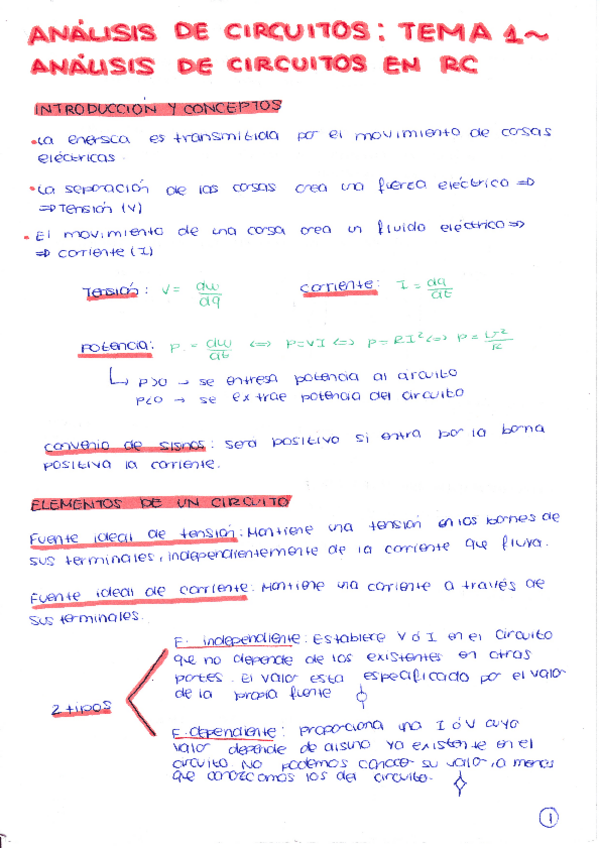 ANÁLISIS DE CIRCUITOS: TEMA 1~
ANÁLISIS DE CIRCUITOS EN RC
INTRODUCCIÓN Y CONCEPTOS
•La energía es transmitida por el movimiento de cargas
eléctricas.
•La separación de las cargas crea una fuerza eléctrica ⇒
⇒Tensión (V)
•El movimiento de una carga crea un fluido eléctrico⇒
⇒ corriente (I)
Tensión: V= dw/dq Corriente: I = dq/dt
Potencia: P = dw/dt ⇔ P=VI ⇔ P= RI² ⇔ P= V²/R
↳ P>0 → se entrega potencia al circuito
P<0 → se extrae potencia del circuito
Convenio de signos: será positivo si entra por la borna
positiva la corriente.
ELEMENTOS DE UN CIRCUITO
Fuente ideal de tensión: Mantiene una tensión en los bornes de
sus terminales, independientemente de la corriente que fluya.
Fuente ideal de corriente: Mantiene una corriente a través de
sus terminales.
2 tipos
E. independiente: Establece V ó I en el circuito
que no depende de los existentes en otras
partes. El valor esta especificado por el valor
de la propia fuente
E. dependiente: proporciona una I ó V cuyo
valor depende de alguno ya existente en el
circuito. No podemos conocer su valor, a menos
que conozcamos los del circuito.
1